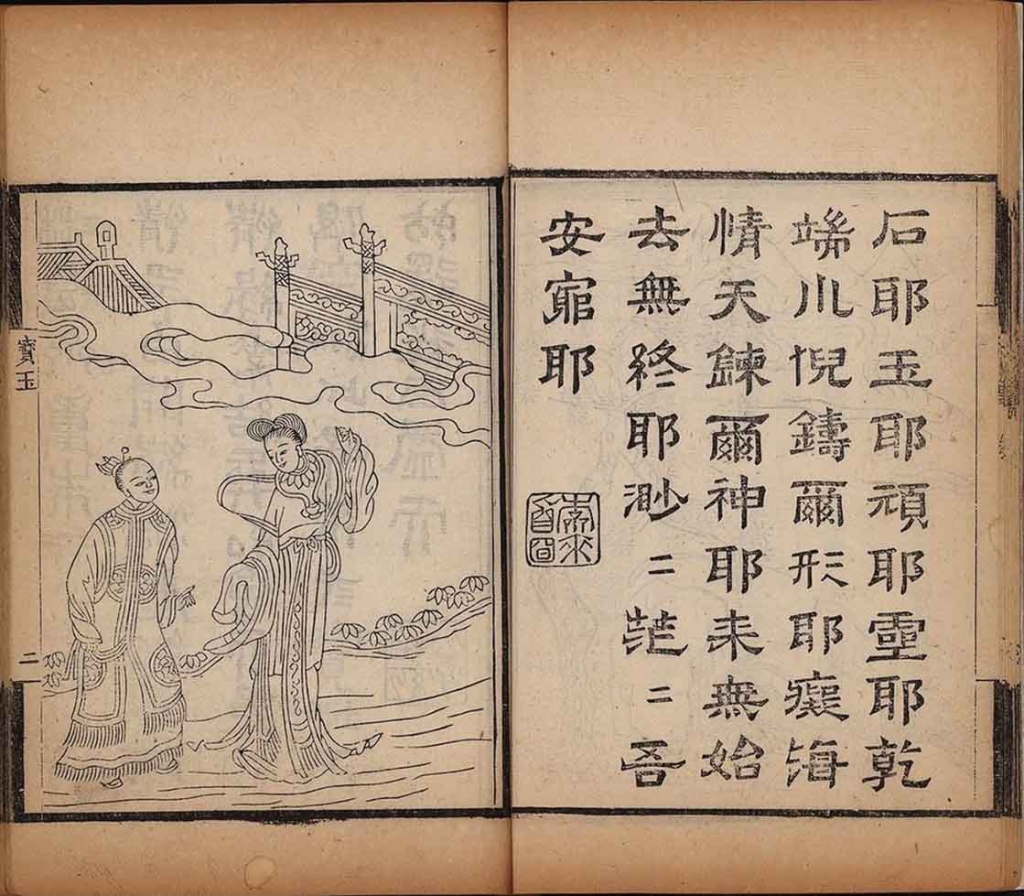 石耶玉耶頑耶靈耶乾
端巛倪鑄爾形耶癡海
情天鍊爾神耶来無始
去無終耶渺二茫二吾
安窮耶
寶玉
二